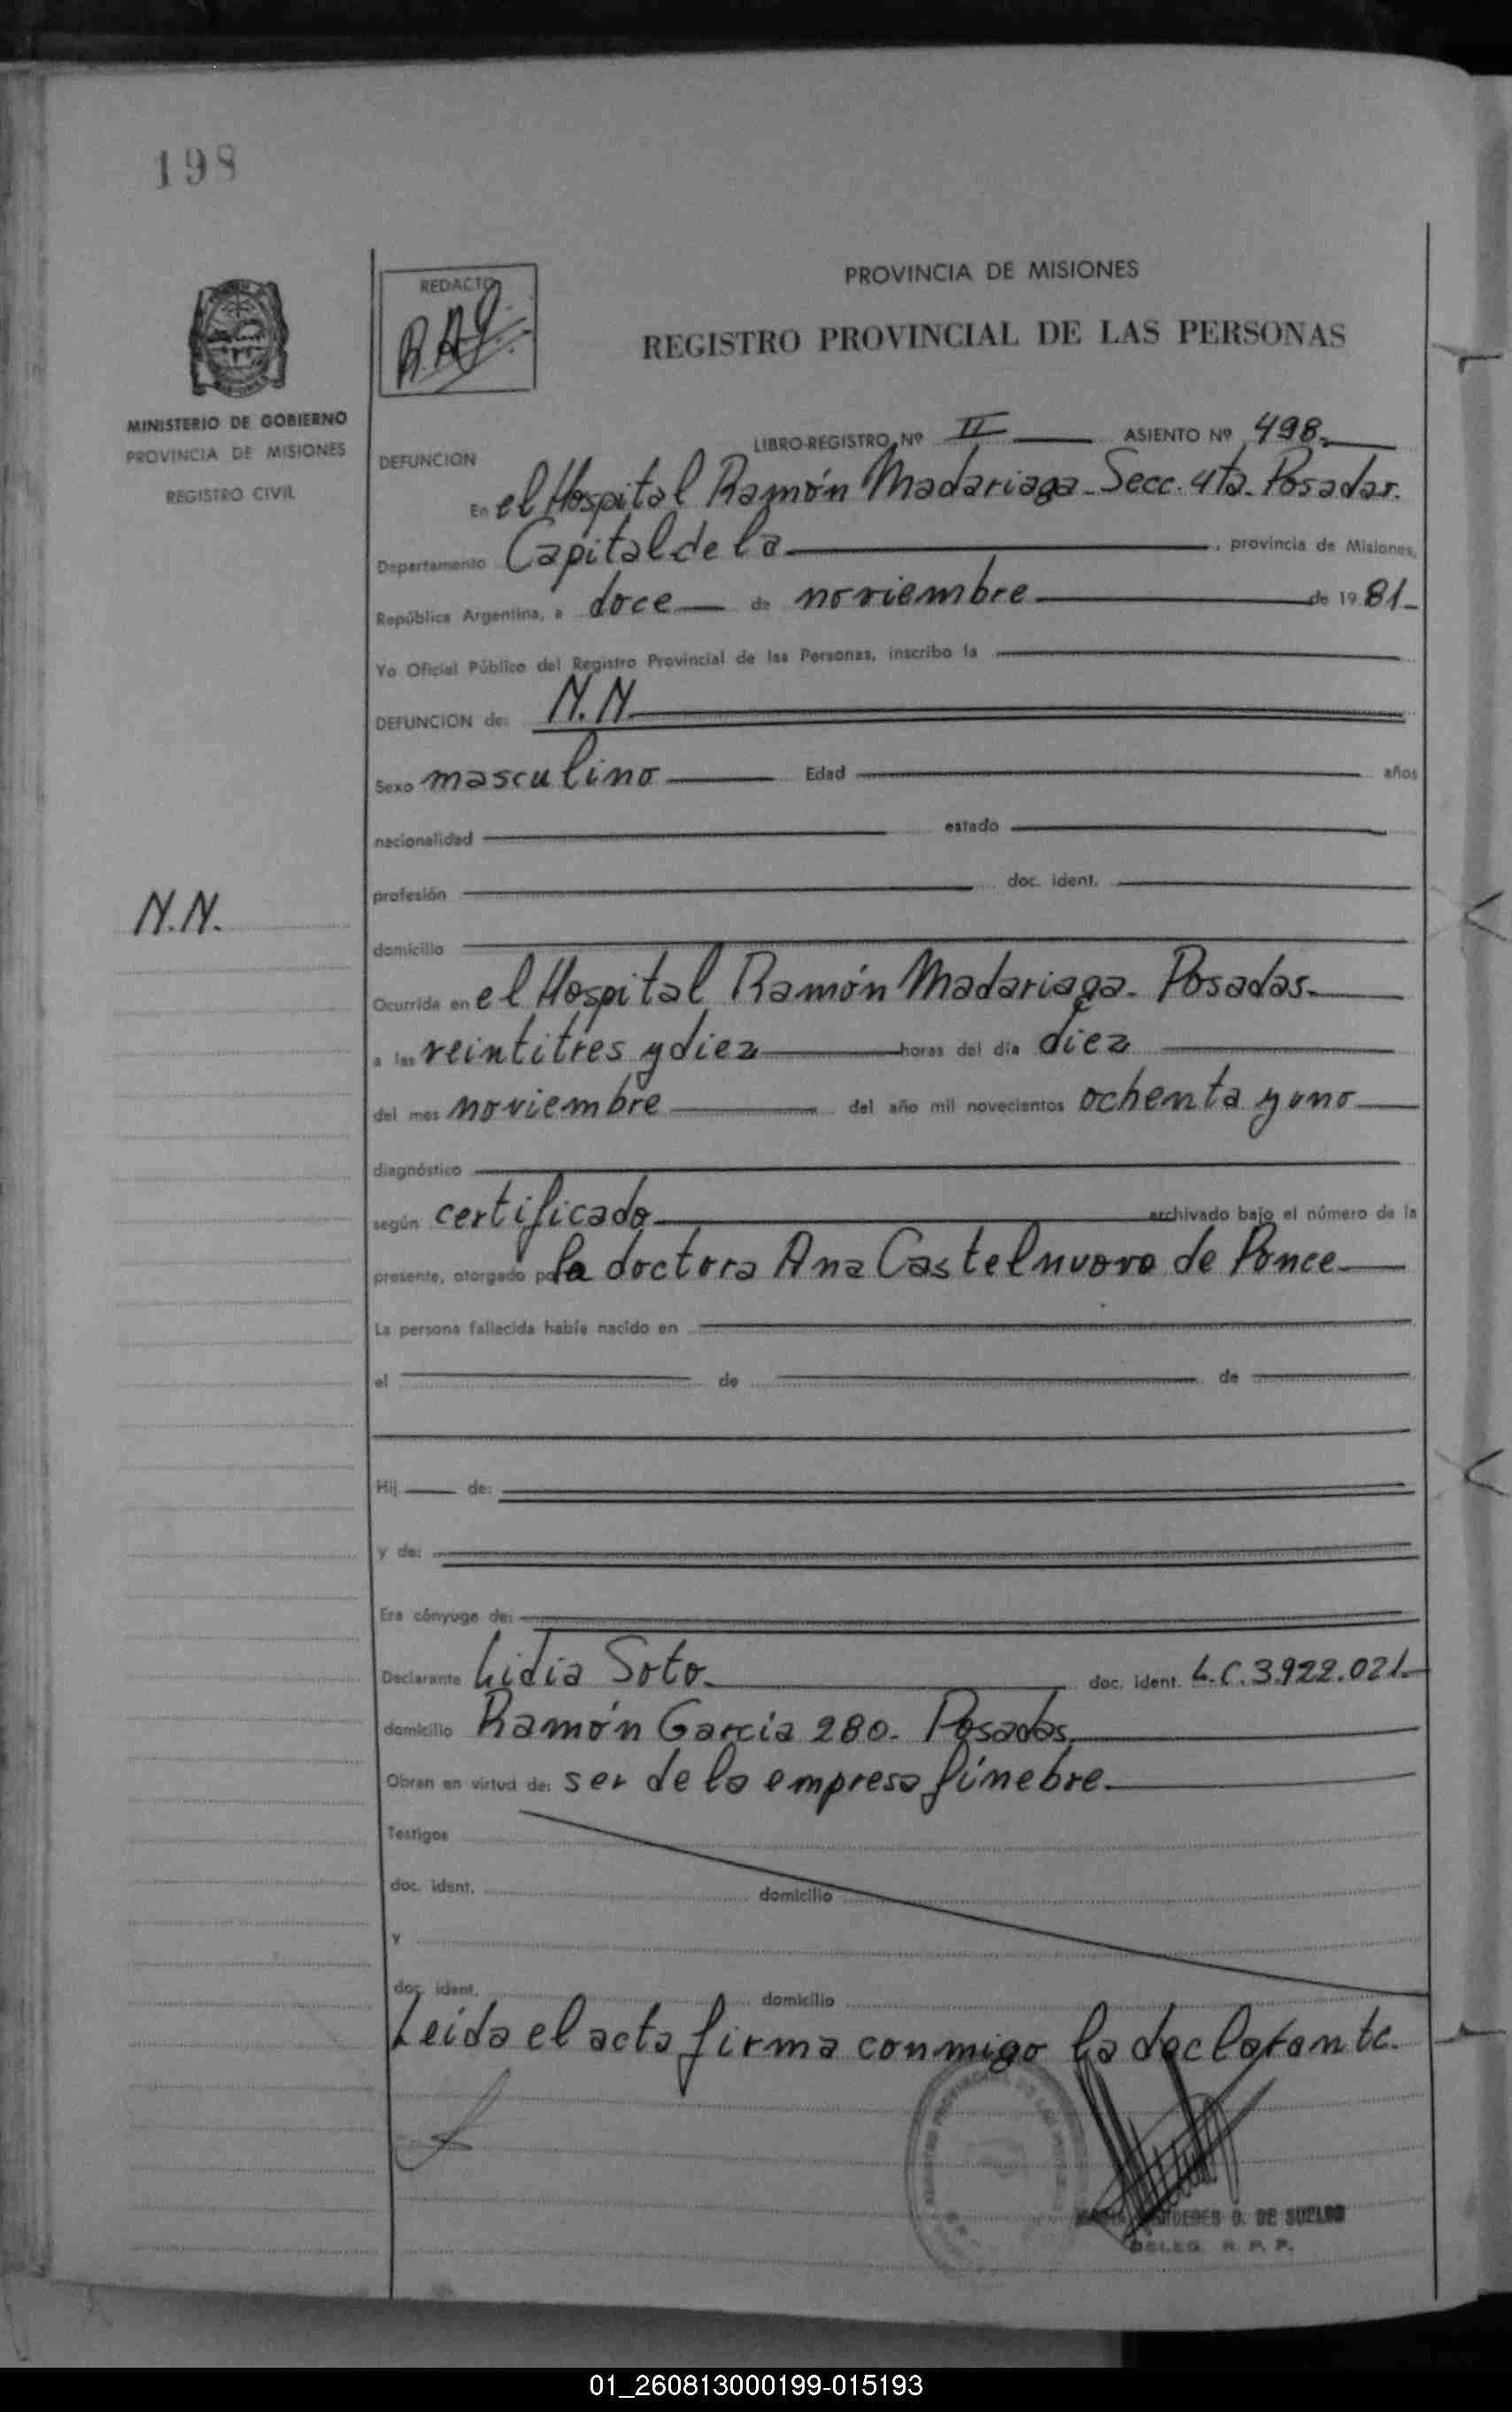 198
REDACTO
PROVINCIA DE MISIONES
REGISTRO PROVINCIAL DE LAS PERSONAS
MINISTERIO DE GOBIERNO
PROVINCIA DE MISIONES
REGISTRO CIVIL
LIBRO-REGISTRO Nº II ASIENTO Nº 498.
DEFUNCION
En el Hospital Ramón Madariaga - Secc. 4ta. Posadas.
Departamento Capital de la , provincia de Misiones,
República Argentina, a doce de noviembre de 1981.
Yo Oficial Público del Registro Provincial de las Personas, inscribo la
DEFUNCION de: N.N.
Sexo masculino Edad años
nacionalidad estado
profesión doc. ident.
N.N.
domicilio
Ocurrida en el Hospital Ramón Madariaga. Posadas.
a las veintitres y diez horas del día diez
del mes noviembre del año mil novecientos ochenta y uno
diagnóstico
según certificado archivado bajo el número de la
presente, otorgado por la doctora Ana Castelnuovo de Ponce
La persona fallecida había nacido en
el de de
Hij de:
y de:
Era cónyuge de:
Declarante Lidia Soto. doc. ident. L.C. 3.922.021.
domicilio Ramón Garcia 280. Posadas.
Obran en virtud de: ser de la empresa fúnebre.
Testigos
doc. ident. domicilio
y
doc. ident. domicilio
Leida el acta firma conmigo la declarante.
DE SUELDO
DELEG. R. P. P.
01_260813000199-015193